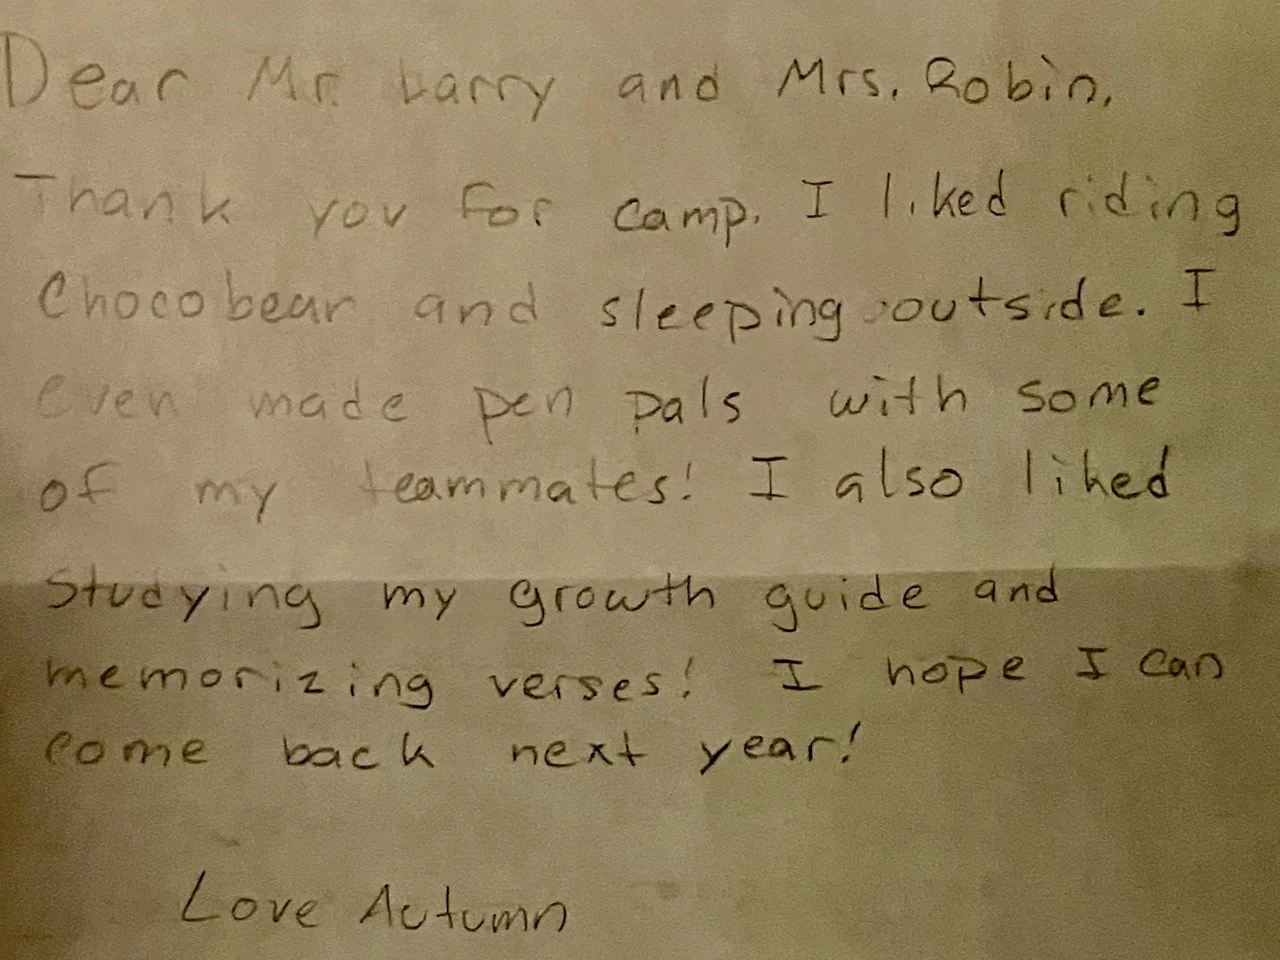 Dear Mr. Larry and Mrs. Robin,
Thank you for camp. I liked riding
Chocobear and sleeping outside. I
even made pen pals with some
of my teammates! I also liked
studying my growth guide and
memorizing verses! I hope I can
come back next year!
Love Autumn